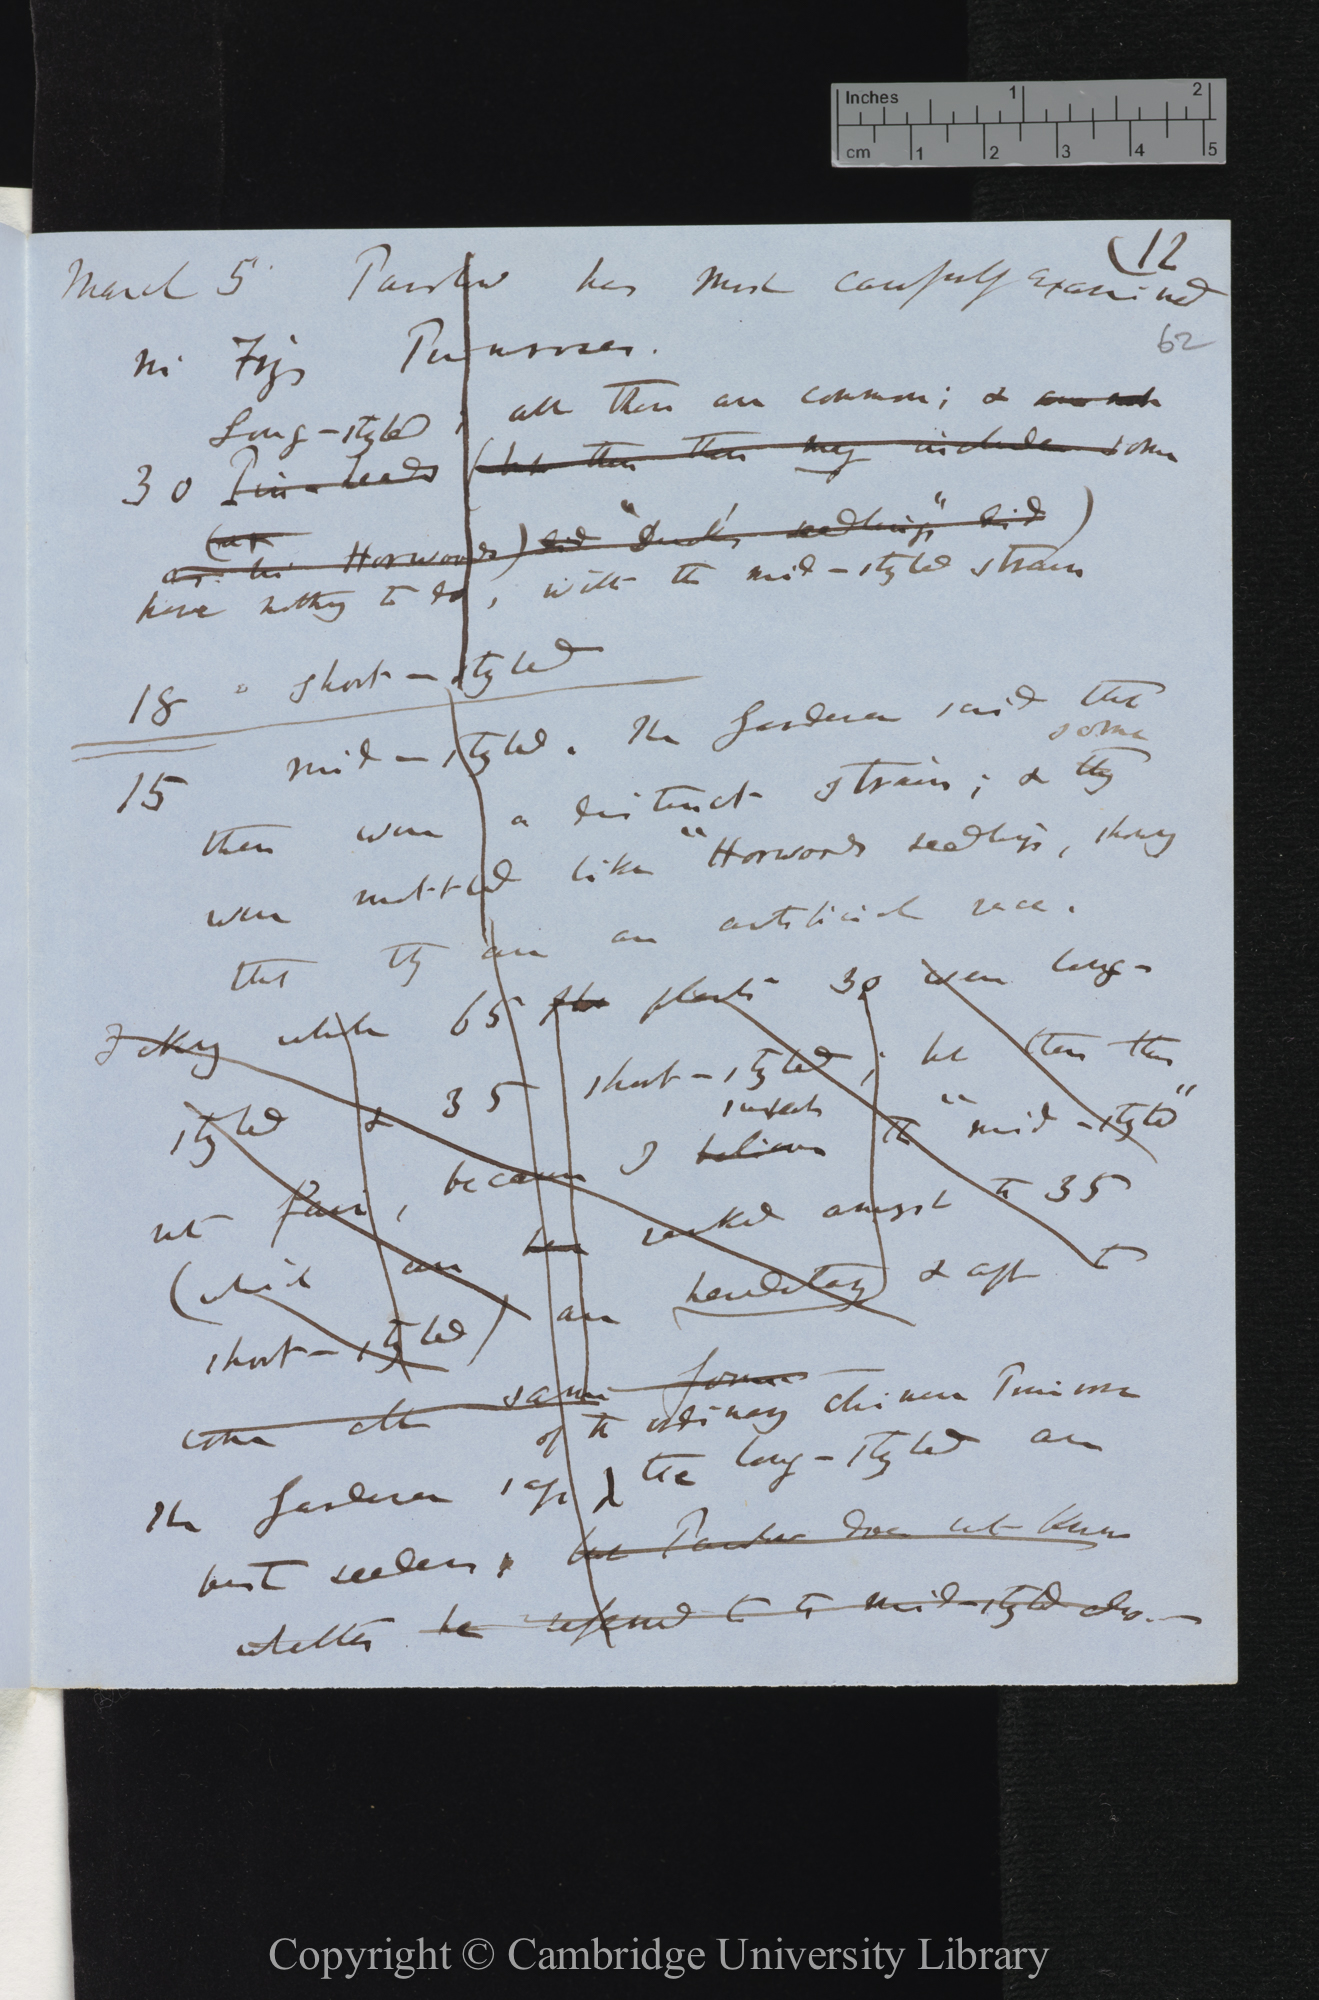 Inches 1 2
cm 1 2 3 4 5
(12
March 5 Parslow has most carefully examined
62
Primroses.
Long-styled; all these are common; &
30 Pin-heads (but then these may include some
Horwoods) did "Duck's seedlings" did)
have nothing to do, with the mid-styled strain
18 " short-styled
15 mid-styled. The Gardener said that
some
these were a distinct strain; & they
were mottled like "Horwoods seedlings, showing
that they are an artificial race.
while 65 plants 30 were long-
styled & 35 short-styled; but then this
suspect
not fair, because I believe the "mid-styled"
(which are ranked amongst the 35
short-styled) are hereditary &
same form
of the ordinary Chinese Primrose
The Gardener says the long-styled are
best seeders, but Parslow does not know
whether he referred to the mid-styled also.—
Copyright © Cambridge University Library